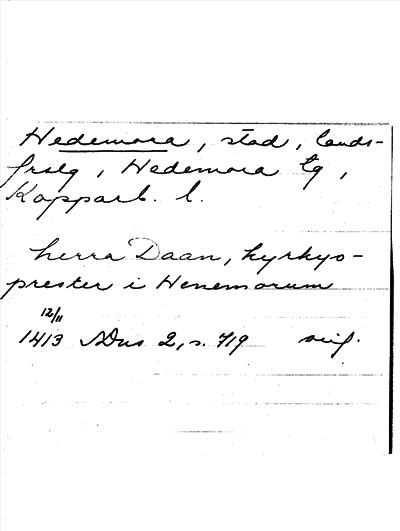 Hedemora, stad, lands-
frslg, Hedemora tg,
Kopparb. l.
herra Daan, kyrkyo-
prester i Henemorum
12/11
1413 SDns 2, s. 719 orig.